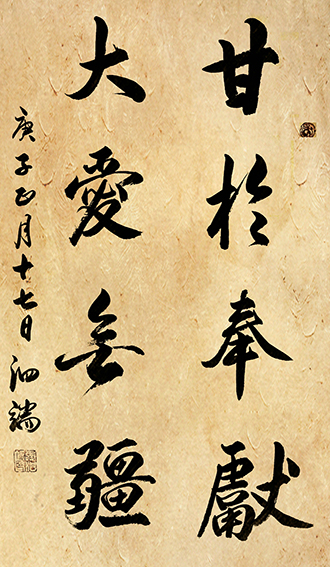 甘於奉獻
大愛無疆
庚子正月十七日泗端